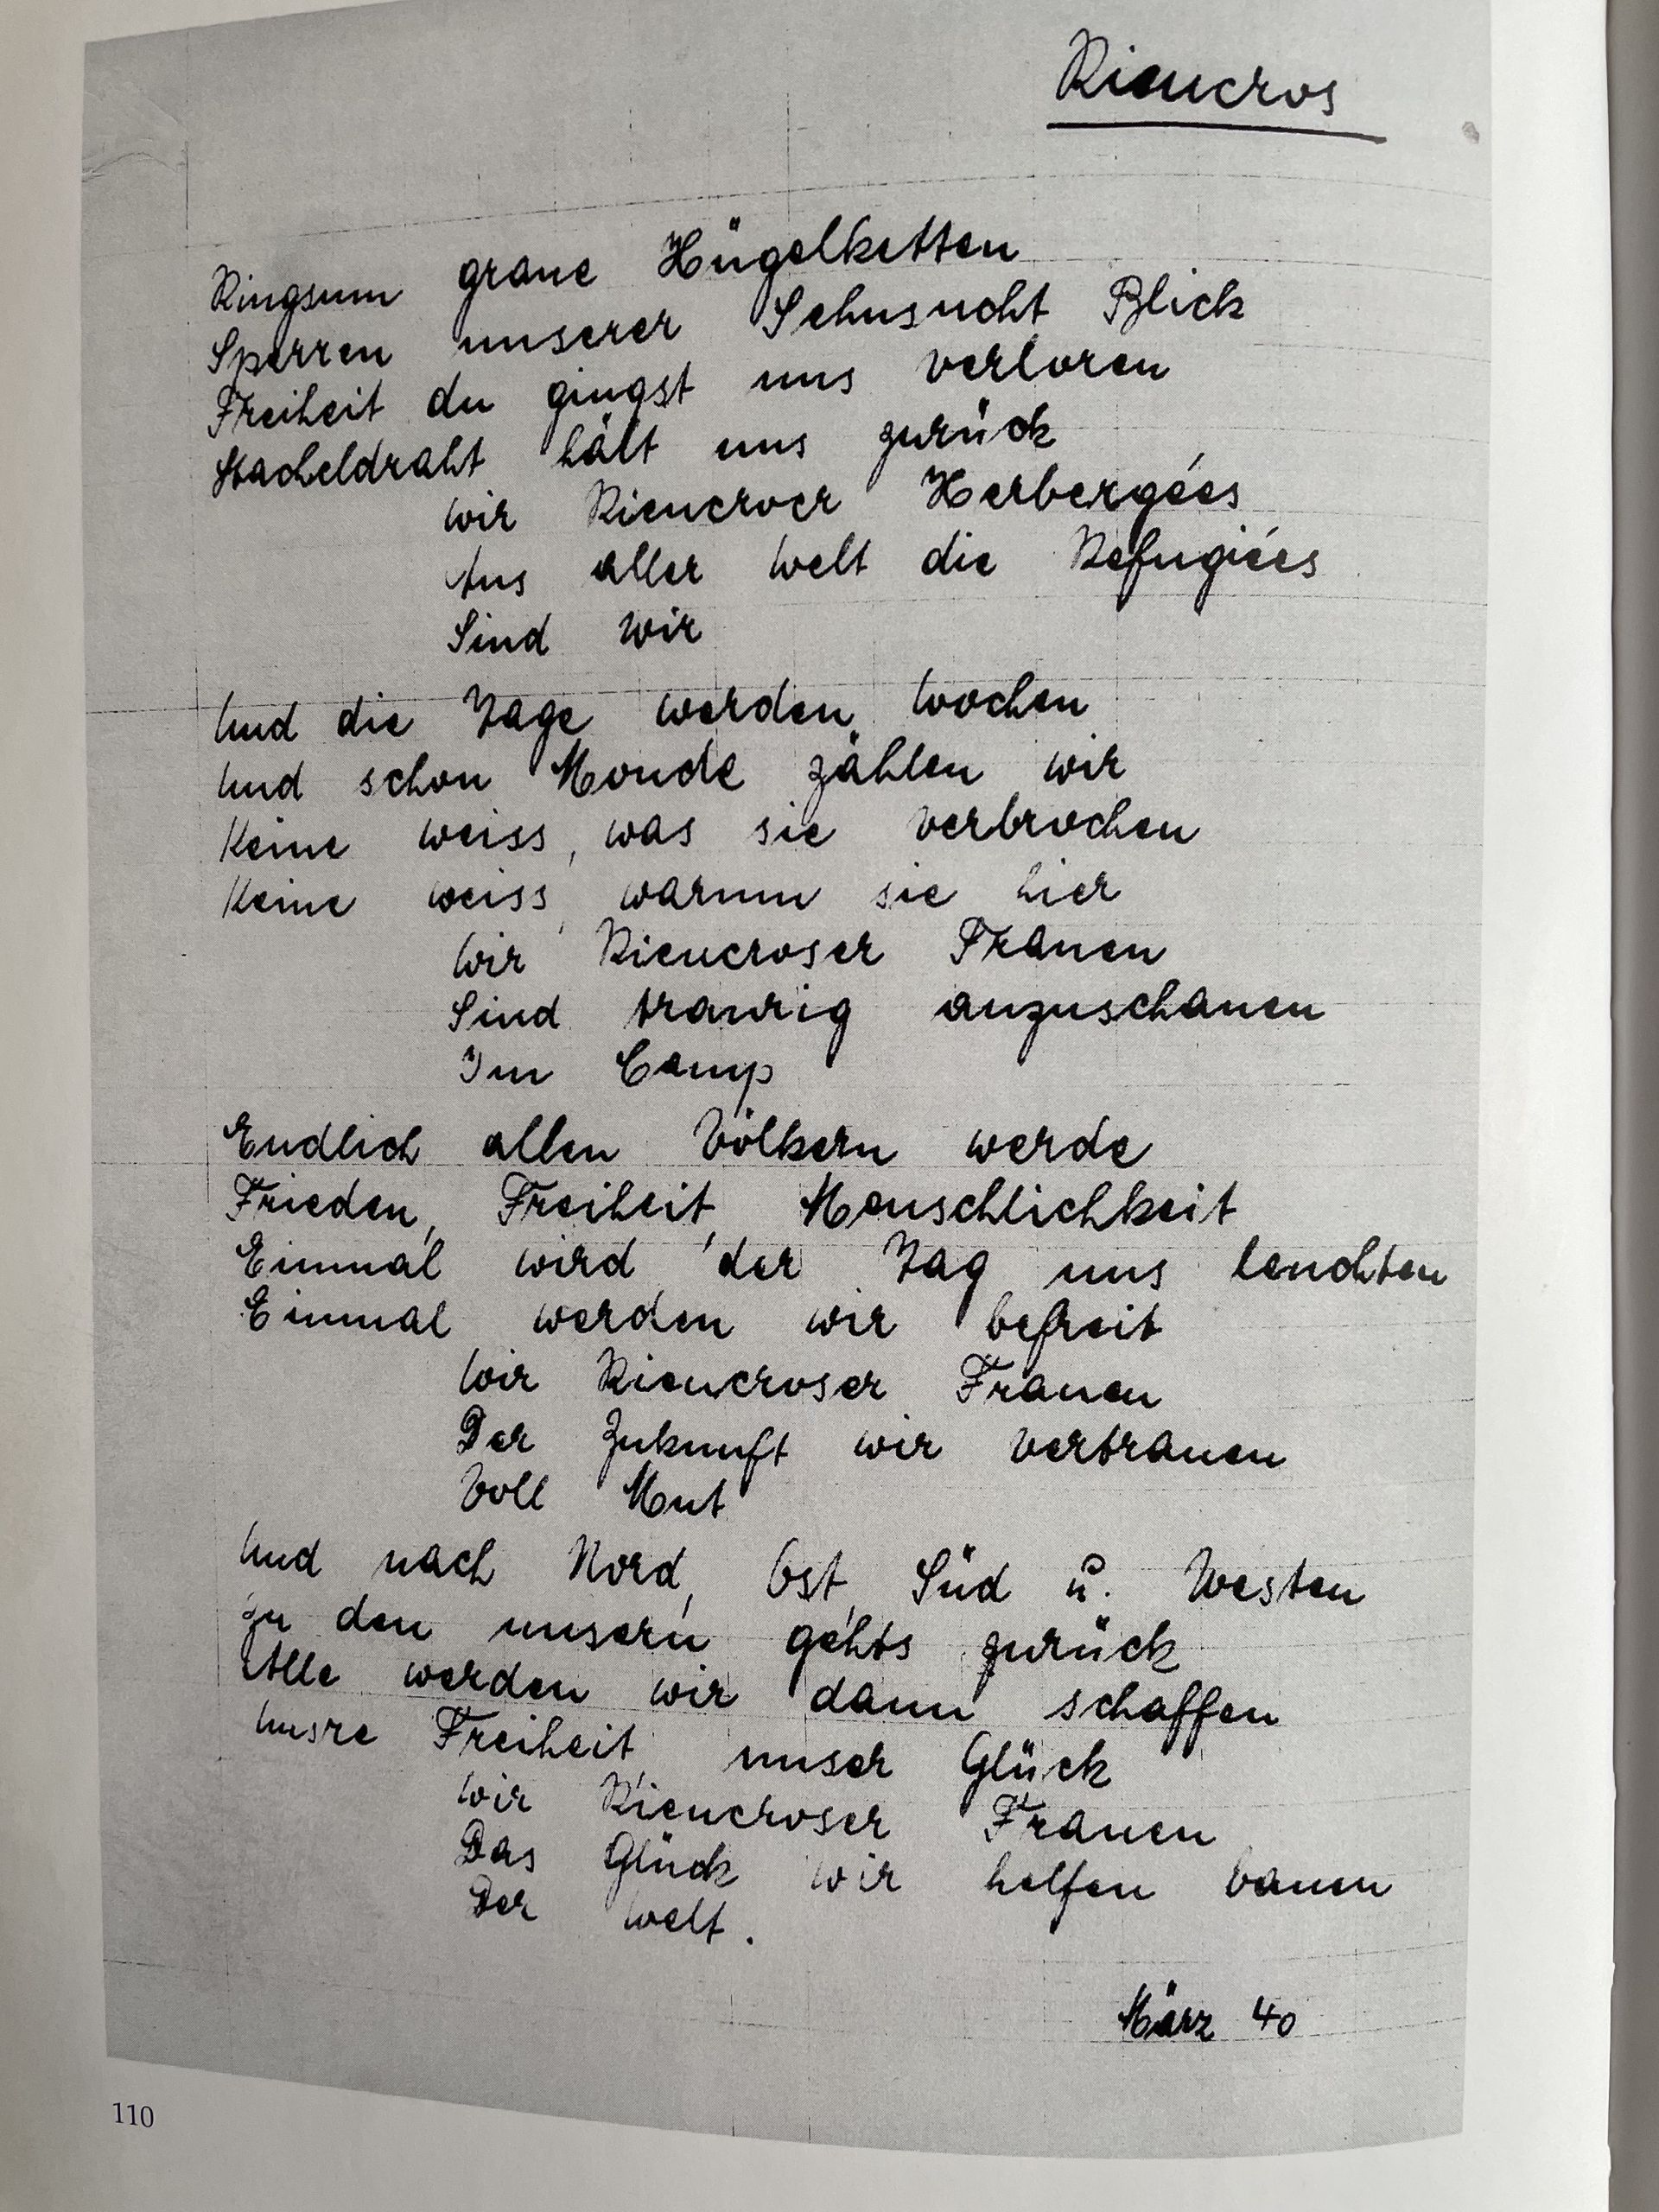 Rieucros
Ringsum graue Hügelketten
Sperren unserer Sehnsucht Blick
Freiheit du gingst uns verloren
Stacheldraht hält uns zurück
Wir Rieucroer Herbergées
Aus aller Welt die Refugiées
Sind wir
Und die Tage werden Wochen
Und schon Monde zählen wir
Keine weiss, was sie verbrochen
Keine weiss, warum sie hier
Wir Rieucroser Frauen
Sind traurig anzuschauen
Im Camp
Endlich allen Völkern werde
Frieden, Freiheit, Menschlichkeit
Einmal wird der Tag uns leuchten
Einmal werden wir befreit
Wir Rieucroser Frauen
Der Zukunft wir vertrauen
Voll Mut
Und nach Nord, Ost, Süd u. Westen
Zu den unsern gehts zurück
Alle werden wir dann schaffen
Unsre Freiheit, unser Glück
Wir Rieucroser Frauen
Das Glück wir helfen bauen
Der Welt.
März 40
110